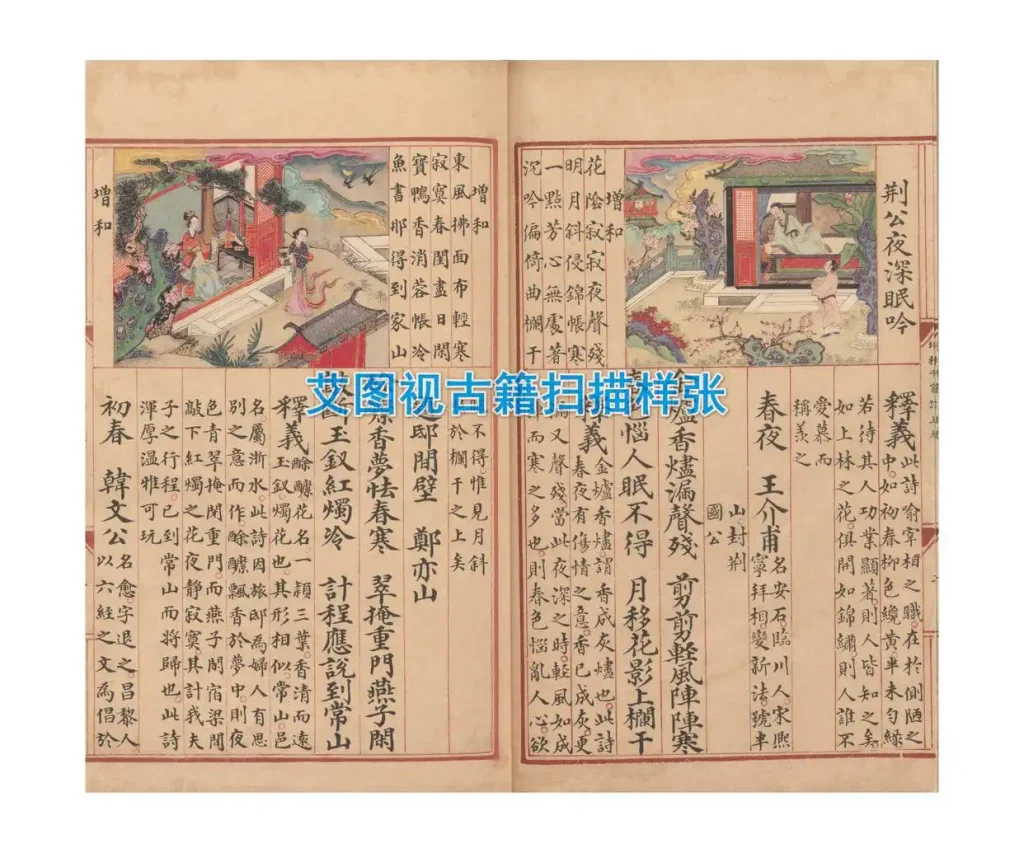 荆公夜深眠吟
增和
花陰寂寂夜聲殘
明月斜侵錦帳寒
一點芳心無處著
沉吟偏倚曲欄干
釋義 此詩喻宰相之職在於側陋之
中如初春柳色纔黄半未匀緑
若待其人功業顯著則人皆知之矣
如上林之花俱開如錦繡則人誰不
愛慕而
稱羡之
春夜 王介甫 名安石臨川人宋熙
寧拜相變新法號半
山封荆
國公
爐香燼漏聲殘 剪剪輕風陣陣寒
惱人眠不得 月移花影上欄干
義 金爐香燼謂香成灰燼也此詩
春夜有傷情之意香已成灰更
漏又聲殘當此夜深之時輕風如成
而寒之多也則春色惱亂人心欲
增和
東風拂面布輕寒
寂寞春閨盡日閑
寶鴨香消蓉帳冷
魚書那得到家山
增和
不得惟見月斜
於欄干之上矣
邸間壁 鄭亦山
香夢怯春寒 翠掩重門燕子閑
玉釵紅燭冷 計程應說到常山
釋義 酴醿花名一頴三葉香清而遠
玉釵燭花也其形相似常山邑
名屬浙水此詩因旅邸為婦人有思
别之意而作酴醿飄香於夢中則夜
色青翠掩閉重門而燕子閣宿梁間
敲下紅燭之花夜静寂寞其計我夫
子之行程已到常山而將歸也此詩
渾厚温雅可玩
初春 韓文公 名愈字退之昌黎人
以六經之文為倡於
艾图视古籍扫描样张